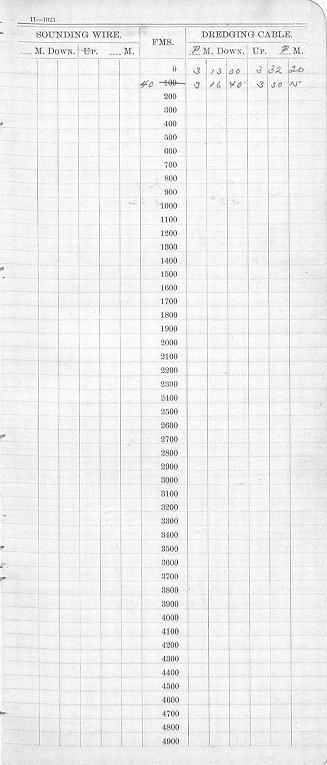 11—1021
SOUNDING WIRE. FMS. DREDGING CABLE.
M. DOWN. UP. M. P M. DOWN. UP. P M.
0 3 13 00 3 32 20
40 100 3 16 40 3 30 15
200
300
400
500
600
700
800
900
1000
1100
1200
1300
1400
1500
1600
1700
1800
1900
2000
2100
2200
2300
2400
2500
2600
2700
2800
2900
3000
3100
3200
3300
3400
3500
3600
3700
3800
3900
4000
4100
4200
4300
4400
4500
4600
4700
4800
4900